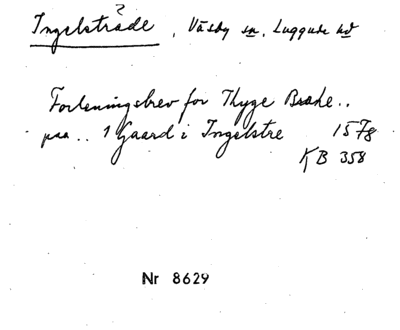 ?
Ingelsträde, Väsby sn, Luggude hd
Forleningsbrev for Thyge Brahe..
paa.. 1 Gaard i Ingelstre 1578
KB 358
Nr 8629